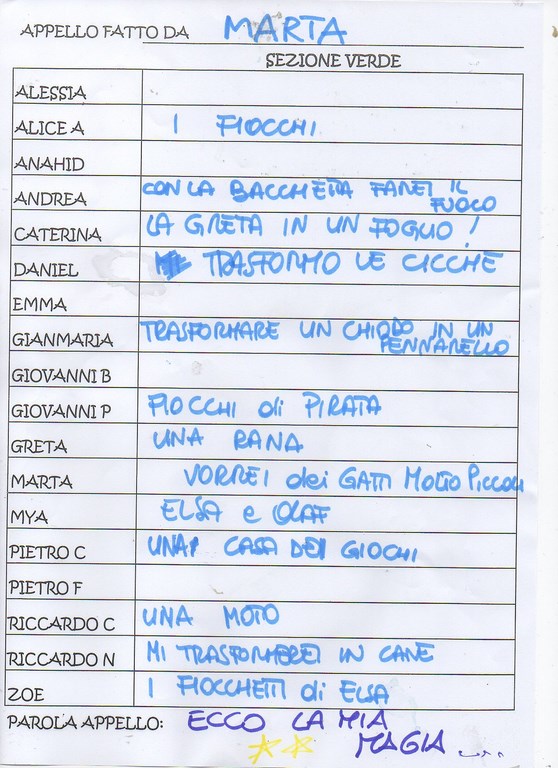 APPELLO FATTO DA MARTA
SEZIONE VERDE
ALESSIA
ALICE A I FIOCCHI
ANAHID
ANDREA CON LA BACCHETTA FAREI IL FUOCO
CATERINA LA GRETA IN UN FOGLIO!
DANIEL TRASFORMO LE CICCHE
EMMA
GIANMARIA TRASFORMARE UN CHIODO IN UN PENNARELLO
GIOVANNI B
GIOVANNI P FIOCCHI di PIRATA
GRETA UNA RANA
MARTA VORREI dei GATTI MOLTO PICCOLI
MYA ELSA e OLAF
PIETRO C UNA CASA DEI GIOCHI
PIETRO F
RICCARDO C UNA MOTO
RICCARDO N MI TRASFORMEREI IN CANE
ZOE I FIOCCHETTI di ELSA
PAROLA APPELLO: ECCO LA MIA
MAGIA ....